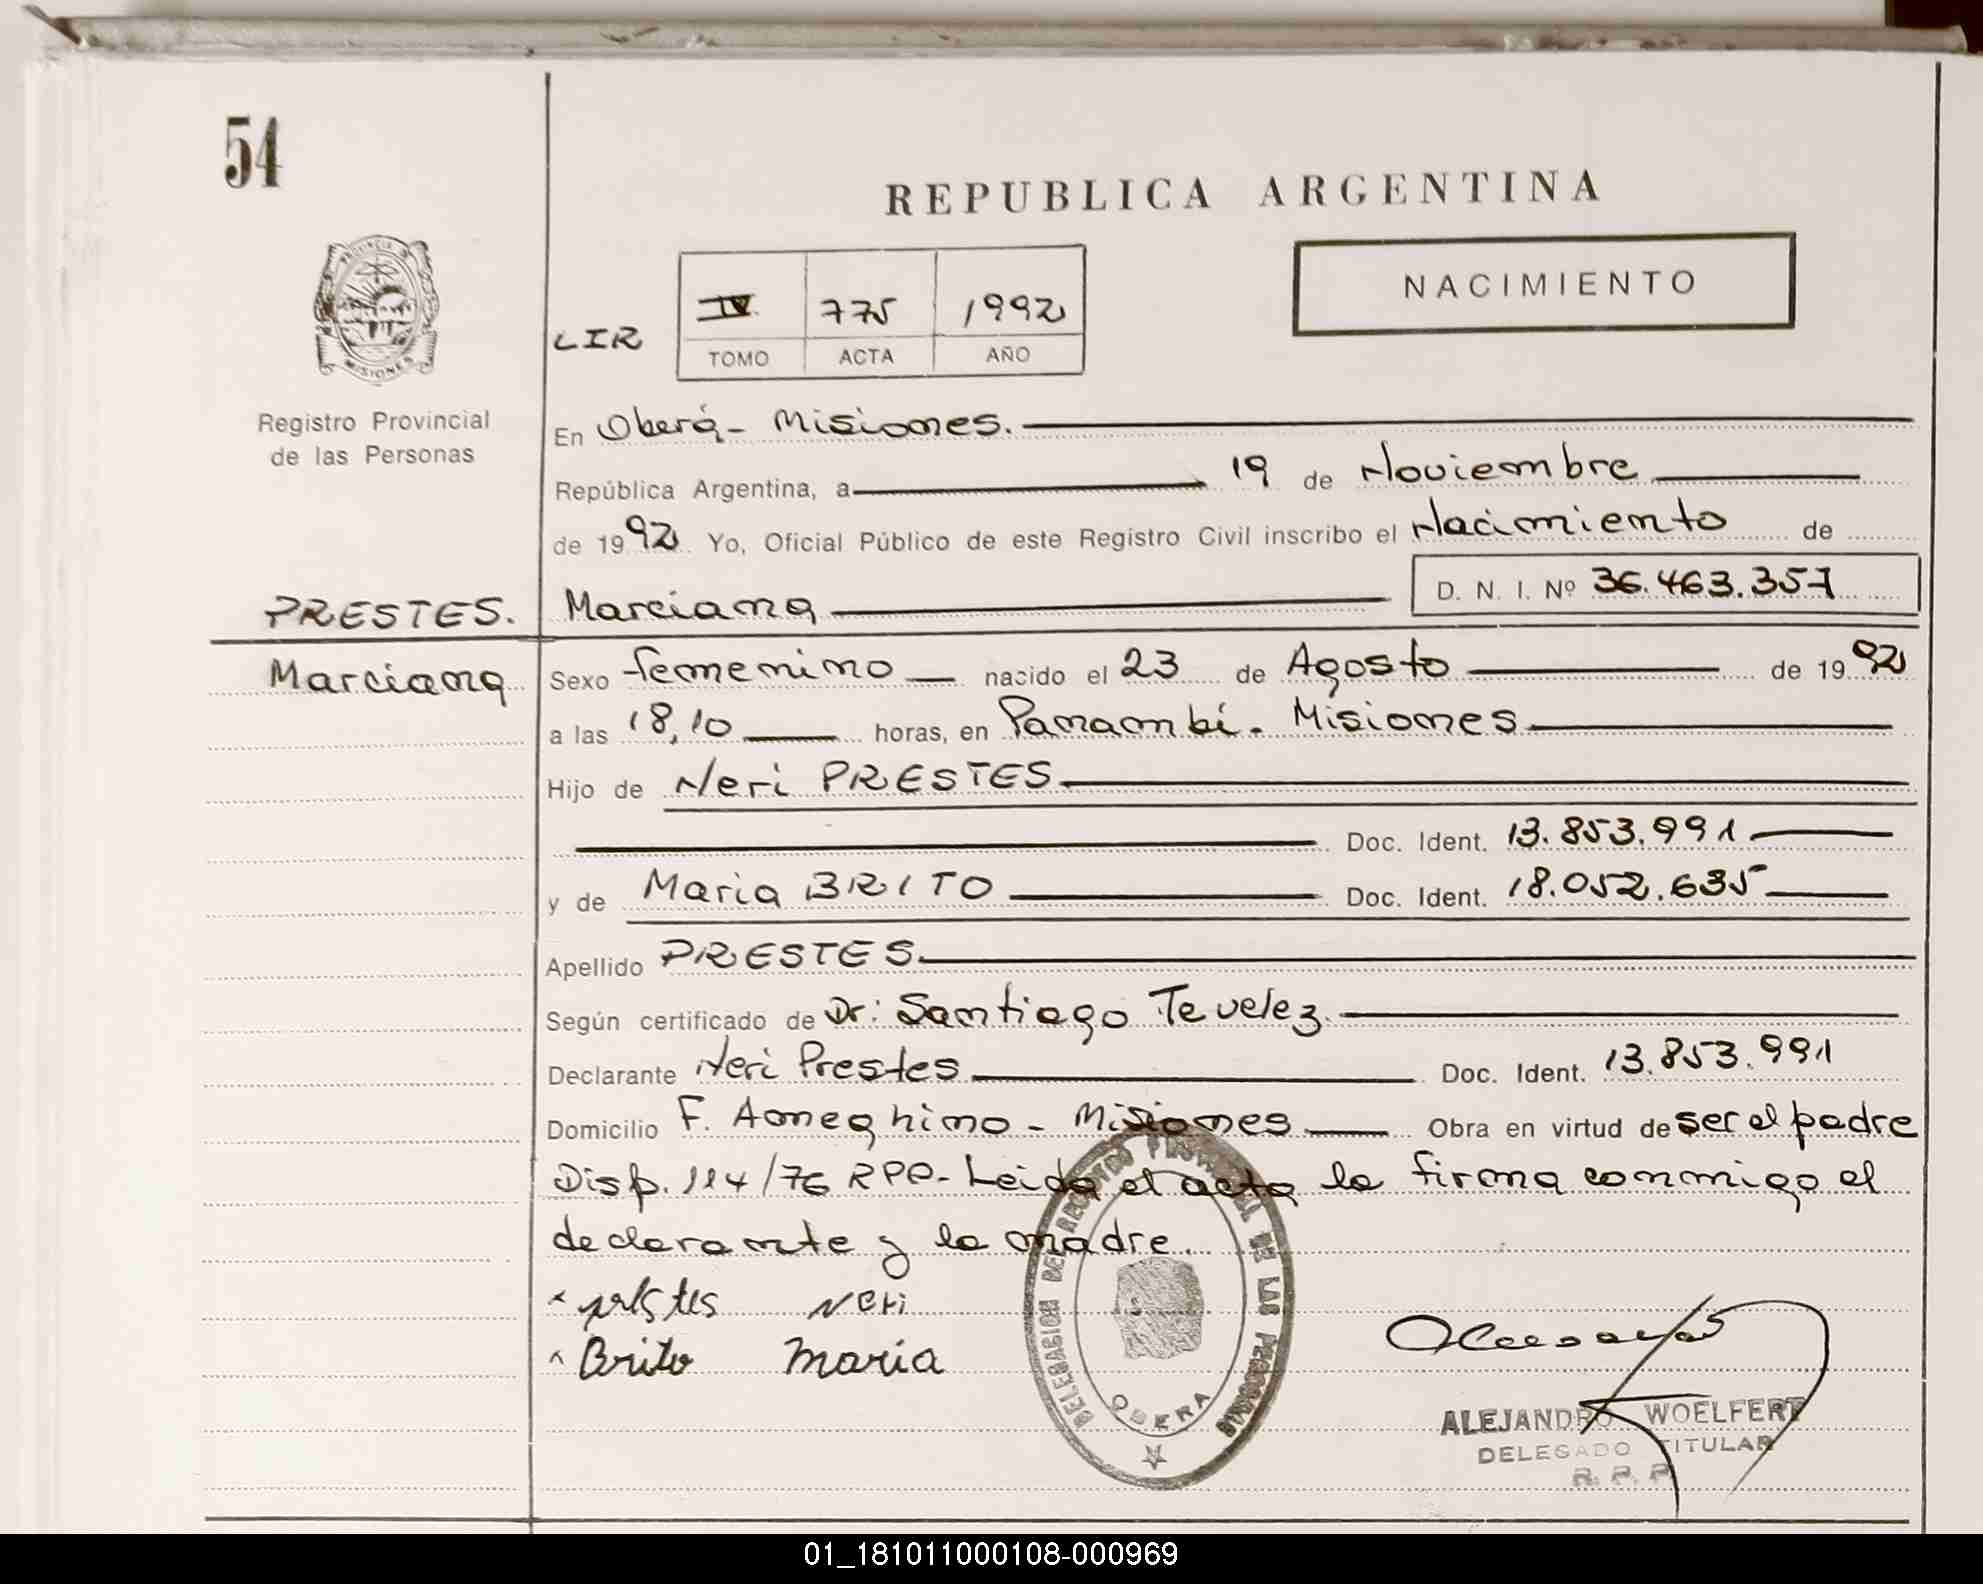 54
REPUBLICA ARGENTINA
PROVINCIA D
MISIONES
Registro Provincial
de las Personas
LIR
IV 775 1992
TOMO ACTA AÑO
NACIMIENTO
En Oberá - Misiones.
República Argentina, a 19 de Noviembre
de 1992 Yo, Oficial Público de este Registro Civil inscribo el Nacimiento de
PRESTES. Marciana D. N. I. Nº 36.463.357
Marciana Sexo femenino nacido el 23 de Agosto de 1992
a las 18,10 horas, en Panambí. Misiones
Hijo de Neri PRESTES
Doc. Ident. 13.853.991
y de Maria BRITO Doc. Ident. 18.052.635
Apellido PRESTES
Según certificado de Dr: Santiago Tevelez
Declarante Neri Prestes Doc. Ident. 13.853.991
Domicilio F. Ameghino - Misiones Obra en virtud de ser el padre
Disp. 114/76 RPP - Leida el acta la firma conmigo el
declarante y la madre.
x prestes Neri
x Brito maria
DELEGACION DEL REGISTRO PROVINCIAL DE LAS PERSONAS
OBERA
ALEJANDRO WOELFERT
DELEGADO TITULAR
R. P. P
01_181011000108-000969